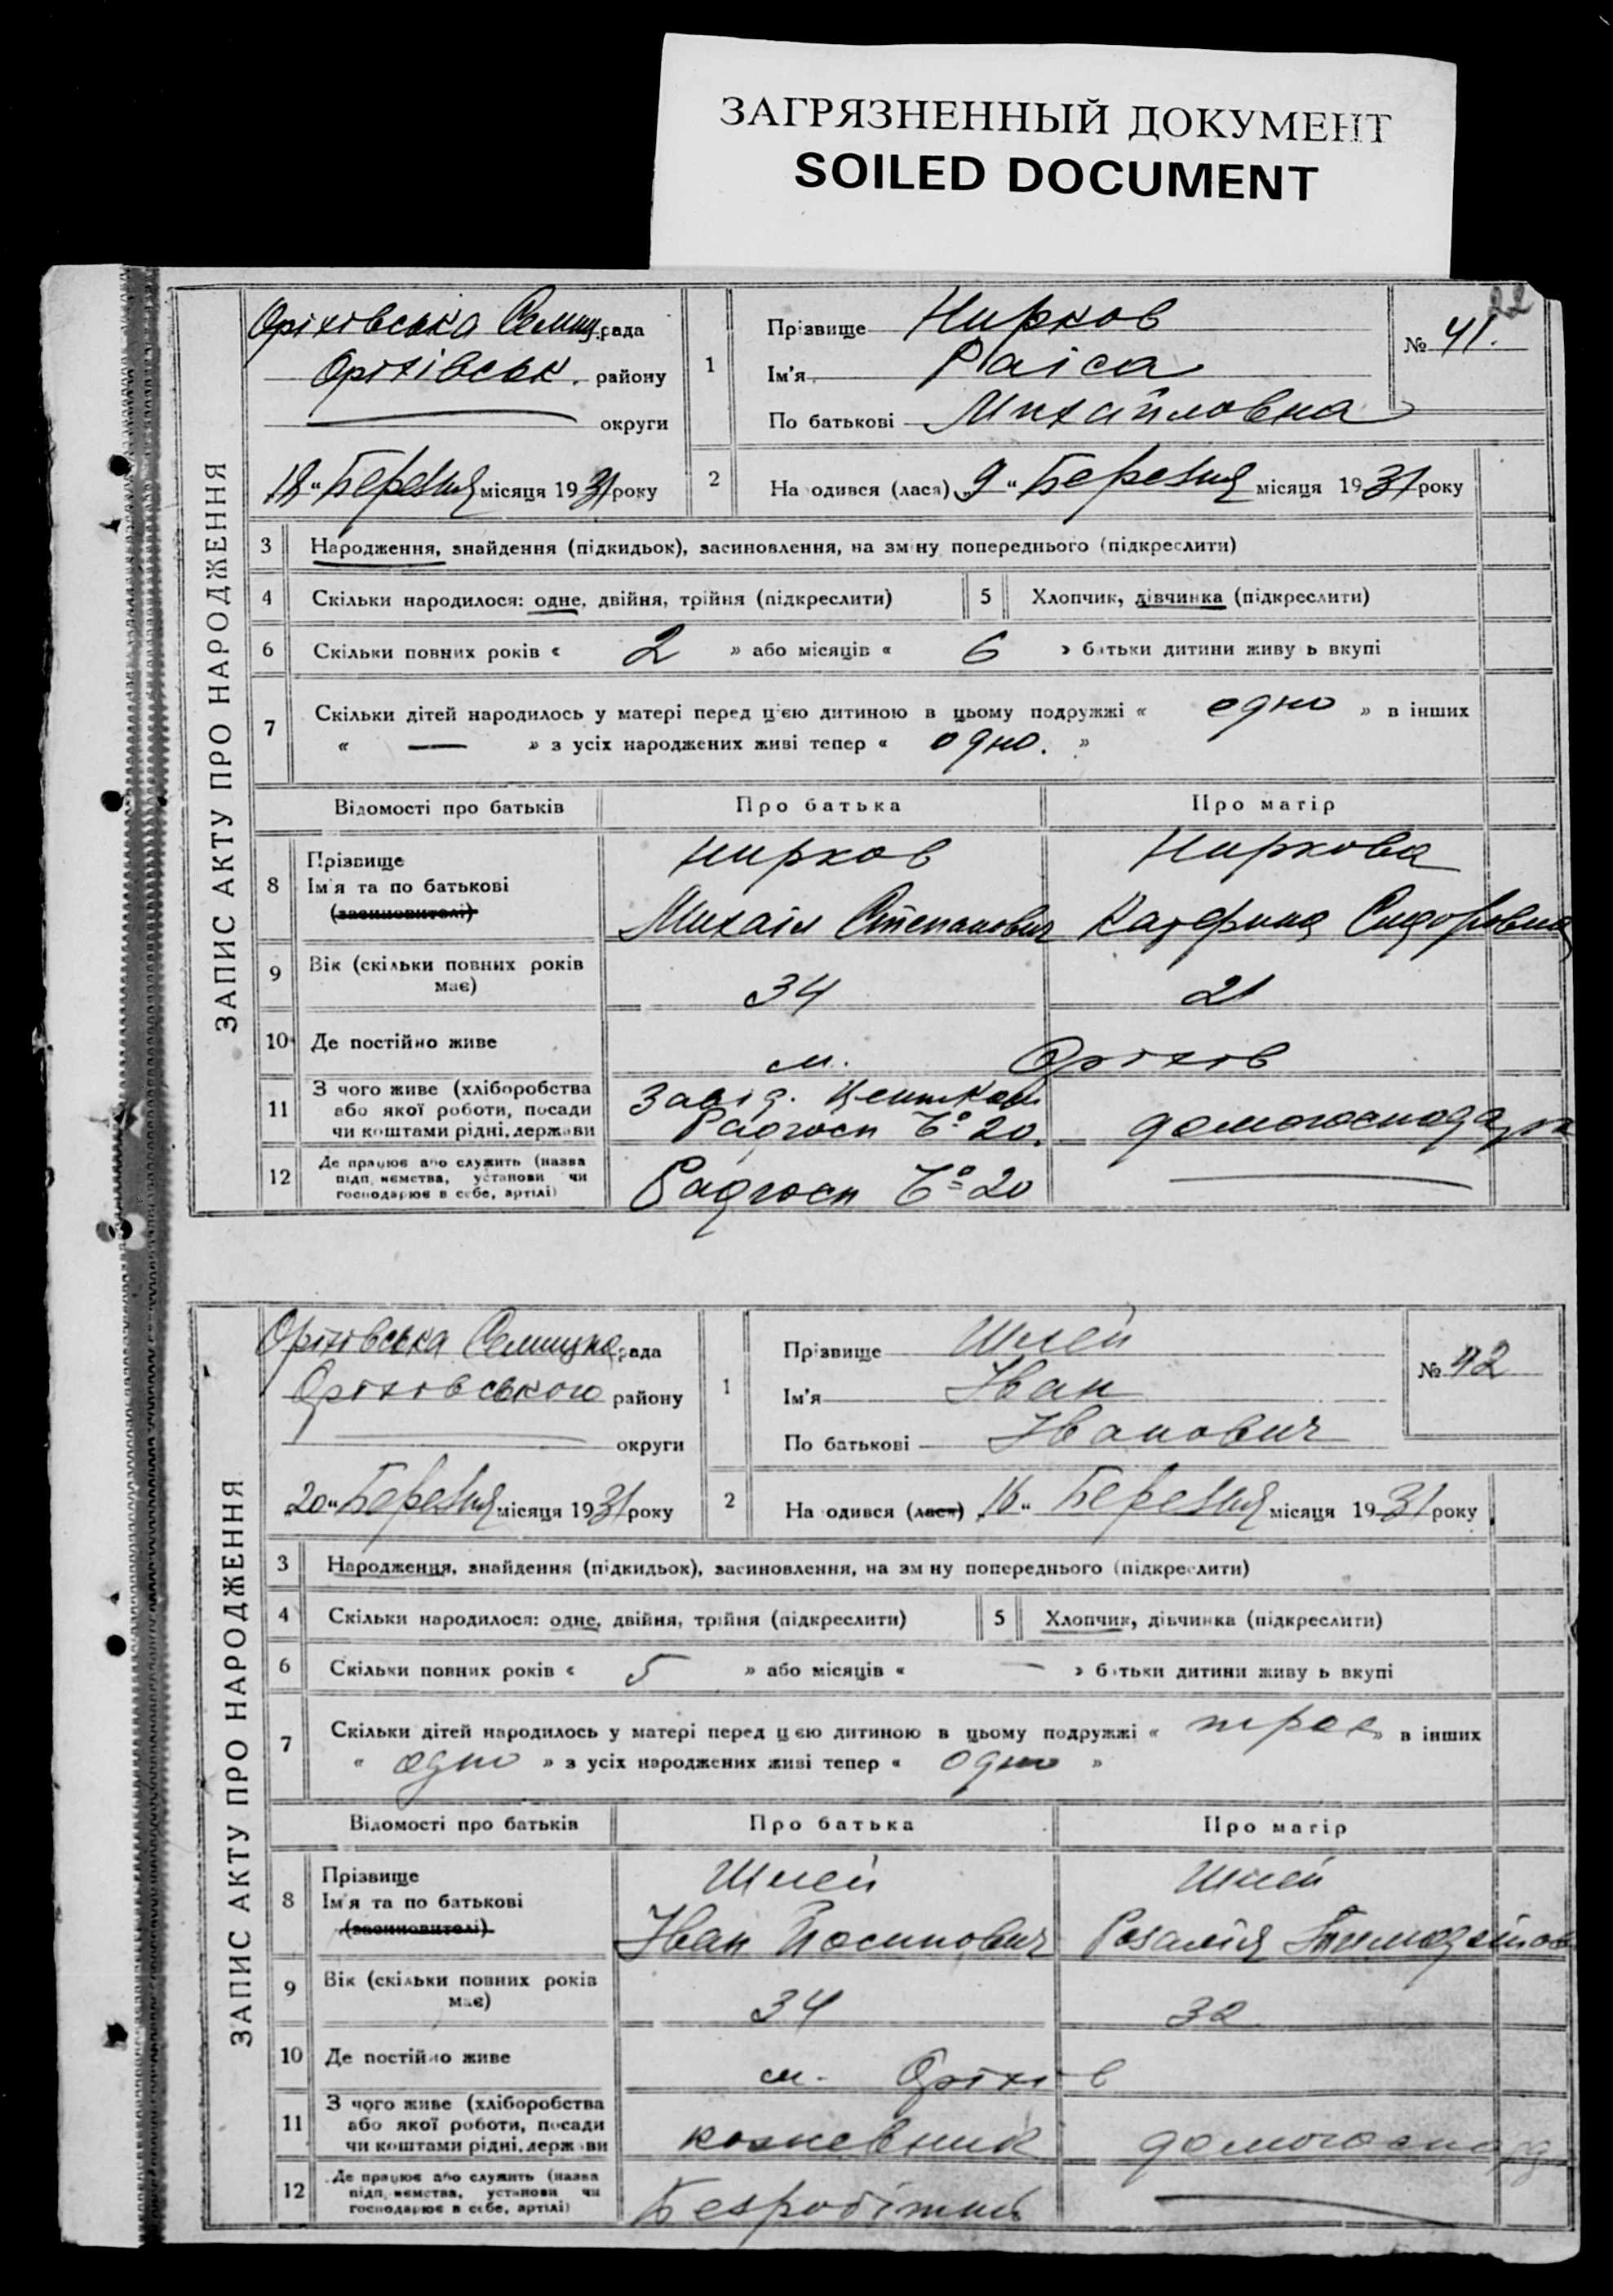 ЗАГРЯЗНЕННЫЙ ДОКУМЕНТ
SOILED DOCUMENT
22
ЗАПИС АКТУ ПРО НАРОДЖЕННЯ
Оріхівська рада
Оріхівськ. району
округи
18 " Березня місяця 1931 року
1
Прізвище Нирков
Ім'я Раіса
По батькові Михайловна
№ 41.
2
На одився (лася) „9 " Березня місяця 1931 року
3 Народження, знайдення (підкидьок), засиновлення, на зміну попереднього (підкреслити)
4 Скільки народилося: одне, двійня, трійня (підкреслити) 5 Хлопчик, дівчинка (підкреслити)
6 Скільки повних років « 2 » або місяців « 6 » батьки дитини живу ь вкупі
7 Скільки дітей народилось у матері перед цією дитиною в цьому подружжі « одно » в інших
« — » з усіх народжених живі тепер « одно. »
Відомості про батьків Про батька Про матір
8 Прізвище Нирков Ниркова
Ім'я та по батькові
(засиновителі) Михаіл Степанович Катерина Сидоровна
9 Вік (скільки повних років має) 34 21
10 Де постійно живе м. Оріхів
11 З чого живе (хліборобства
або якої роботи, посади
чи коштами рідні, держави
Завід.
Радгосп № 20. домогосподарка
12 Де працює або служить (назва
підп ємства, установи чи
господарює в себе, артілі)
Радгосп № 20 —
ЗАПИС АКТУ ПРО НАРОДЖЕННЯ
Оріхівська рада
Оріхівського району
округи
„20 " Березня місяця 1931 року
1
Прізвище
Ім'я Іван
По батькові Іванович
№ 42
2
На одився (лася) „16 " Березня місяця 1931 року
3 Народження, знайдення (підкидьок), засиновлення, на зм ну попереднього (підкреслити)
4 Скільки народилося: одне, двійня, трійня (підкреслити) 5 Хлопчик, дівчинка (підкреслити)
6 Скільки повних років « 5 » або місяців « — » батьки дитини живу ь вкупі
7 Скільки дітей народилось у матері перед цією дитиною в цьому подружжі « троє » в інших
« одно » з усіх народжених живі тепер « одно »
Відомості про батьків Про батька Про матір
8 Прізвище
Ім'я та по батькові
(засиновителі) Іван Йосипович Розалія
9 Вік (скільки повних років має) 34 32
10 Де постійно живе м. Оріхів
11 З чого живе (хліборобства
або якої роботи, посади
чи коштами рідні, держ ви
домогоспод
12 Де працює або служить (назва
підп ємства, установи чи
господарює в себе, артілі)
Безробітний —